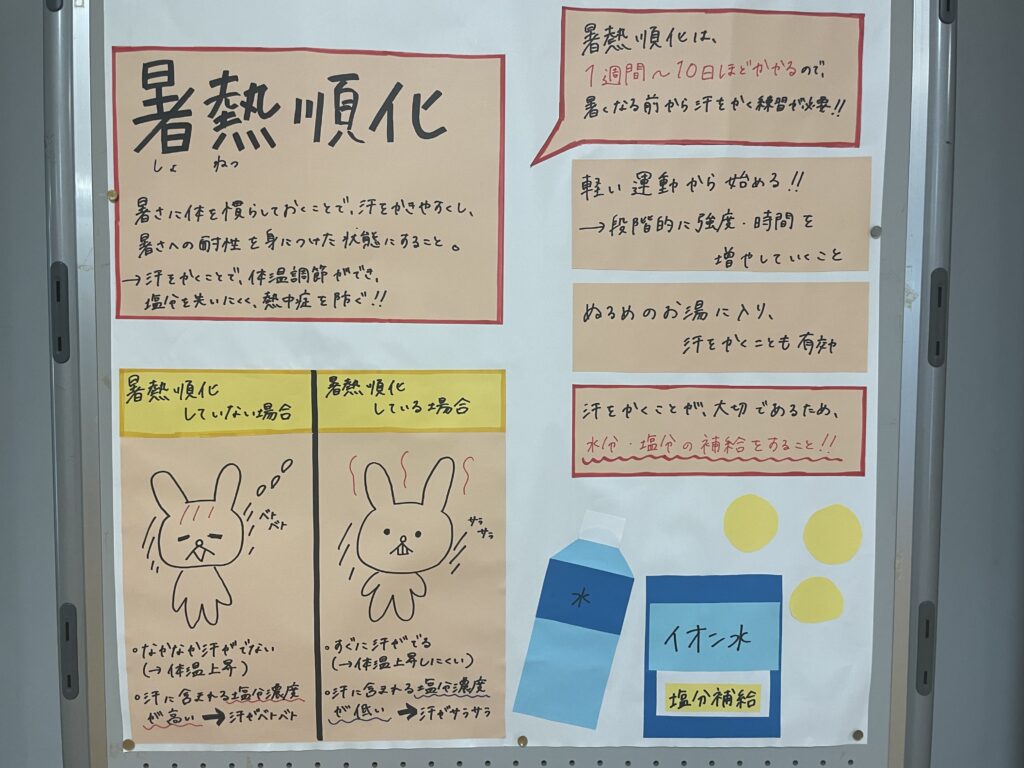 暑熱順化
しょ ねつ
暑さに体を慣らしておくことで、汗をかきやすくし、
暑さへの耐性を身につけた状態にすること。
→汗をかくことで、体温調節ができ、
塩分を失いにくく、熱中症を防ぐ!!
暑熱順化は、
1週間～10日ほどかかるので、
暑くなる前から汗をかく練習が必要!!
軽い運動から始める!!
→段階的に強度・時間を
増やしていくこと
ぬるめのお湯に入り、
汗をかくことも有効
汗をかくことが、大切であるため、
水分・塩分の補給をすること!!
暑熱順化
していない場合
ベト
ベト
。なかなか汗がでない
(→体温上昇)
。汗に含まれる塩分濃度
が高い→汗がベトベト
暑熱順化
している場合
サラ
サラ
。すぐに汗がでる
(→体温上昇しにくい)
。汗に含まれる塩分濃度
が低い→汗がサラサラ
水
イオン水
塩分補給